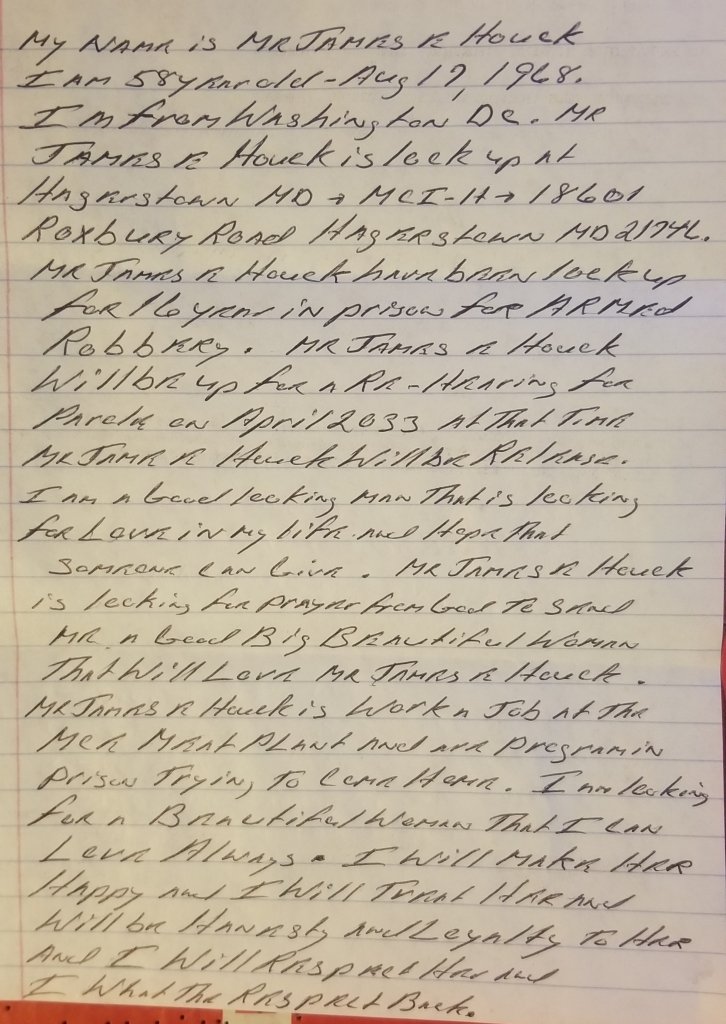 My Name is Mr James E Houck
I am 58 year old - Aug 17, 1968.
I'm from Washington Dc. Mr
James E Houck is lock up at
Hagerstown MD → MCI-H → 18601
Roxbury Road Hagerstown MD 21746.
Mr James E Houck have been lock up
for 16 year in prison for ARMed
Robbery. Mr James E Houck
Will be up for a Re-Hearing for
Parole on April 2033 at That Time
Mr Jame E Houck Will be Release.
I am a Good looking man That is looking
for Love in my life and Hope That
Someone can Give. Mr James E Houck
is looking for prayer from God To Send
Me a Good Big Beautiful Woman
That Will Love Mr James E Houck.
Mr James E Houck is Work a Job at The
Mce Meat Plant and are program in
prison Trying To Come Home. I am looking
for a Beautiful Woman That I Can
Love Always. I Will Make Her
Happy and I Will Treat Her and
Will be Honesty and Loyalty To Her
And I Will Respect Her and
I What The Respect Back.